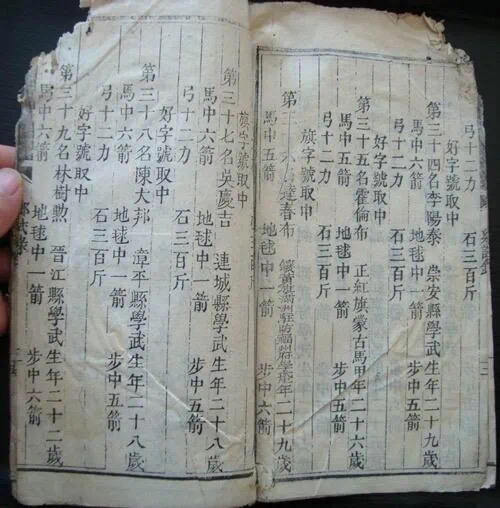 弓十二力 石三百斤
好字號取中
第三十四名李陽泰 崇安縣學武生年二十九歲
馬中六箭 地毬中一箭 步中五箭
弓十二力 石三百斤
好字號取中
第三十五名霍倫布 正紅旗蒙古馬甲年二十六歲
馬中五箭 地毬中一箭 步中五箭
弓十二力 石三百斤
旗字號取中
第三 六 達春布 鑲黃旗滿洲駐防福州府學 年二十九歲
馬中五箭 地毬中一箭 步中六箭
旗字號取中
第三十七名吳慶吉 連城縣學武生年二十八歲
馬中六箭 地毬中一箭 步中五箭
弓十二力 石三百斤
好字號取中
第三十八名陳大邦 漳平縣學武生年二十八歲
馬中六箭 地毬中一箭 步中五箭
弓十二力 石三百斤
好字號取中
第三十九名林樹勲 晉江縣學武生年二十二歲
馬中六箭 地毬中一箭 步中六箭